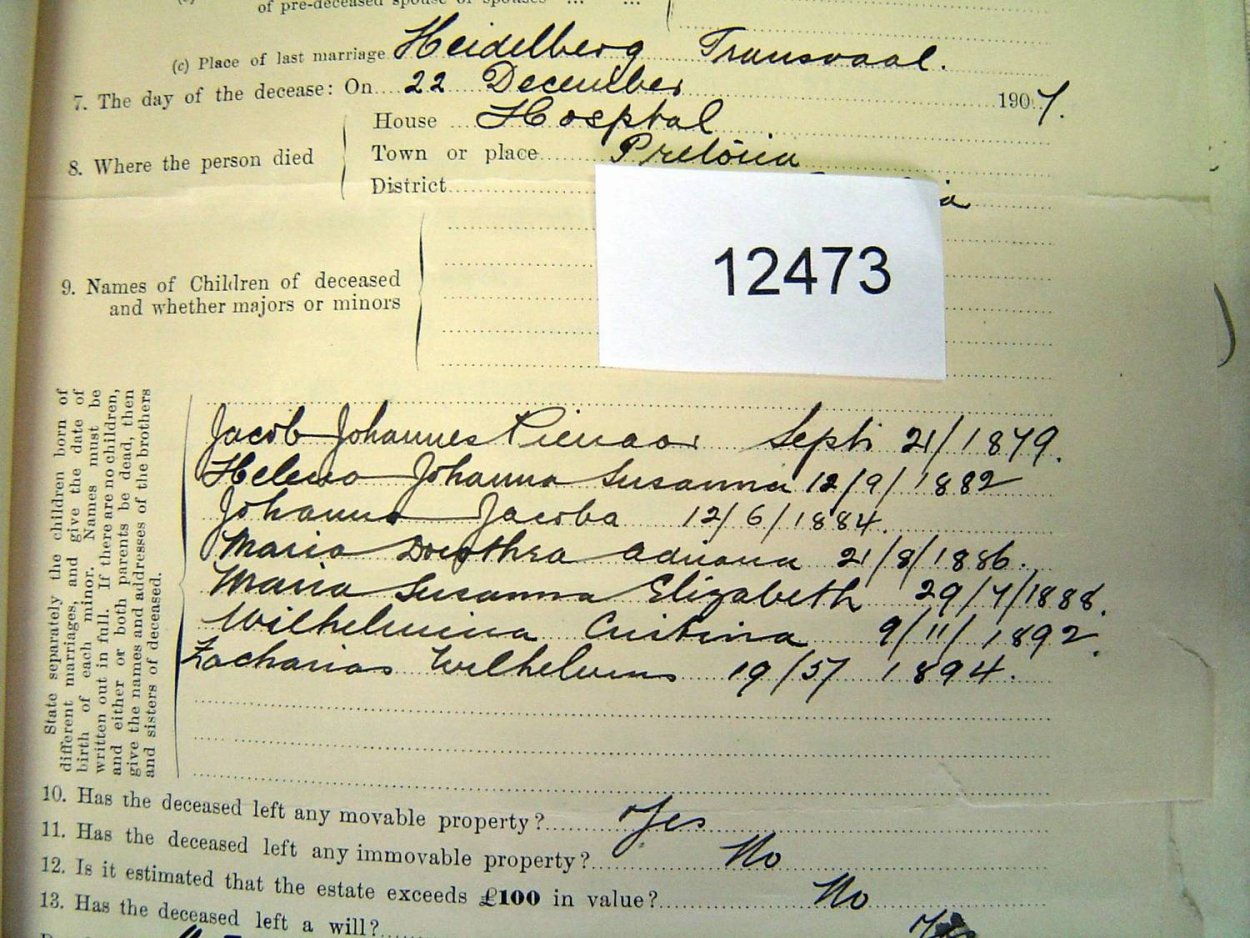 of pre-deceased spouse or spouses ... ...
(c) Place of last marriage Heidelberg Transvaal.
7. The day of the decease: On 22 December 1907.
House Hosptal
8. Where the person died
Town or place Pretoria
District
12473
9. Names of Children of deceased
and whether majors or minors
State separately the children born of
different marriages, and give the date of
birth of each minor. Names must be
written out in full. If there are no children,
and either or both parents be dead, then
give the names and addresses of the brothers
and sisters of deceased.
Jacob Johannes Pienaar Sept 21/1879.
Helena Johanna Susanna 12/9/1882
Johanna Jacoba 12/6/1884.
Maria Dorothea Adriana 21/8/1886.
Maria Susanna Elizabeth 29/7/1888.
Wilhelmina Cristina 9/11/1892.
Zacharias Wilhelmus 19/5/1894.
10. Has the deceased left any movable property? Yes
11. Has the deceased left any immovable property? No
12. Is it estimated that the estate exceeds £100 in value? No
13. Has the deceased left a will?